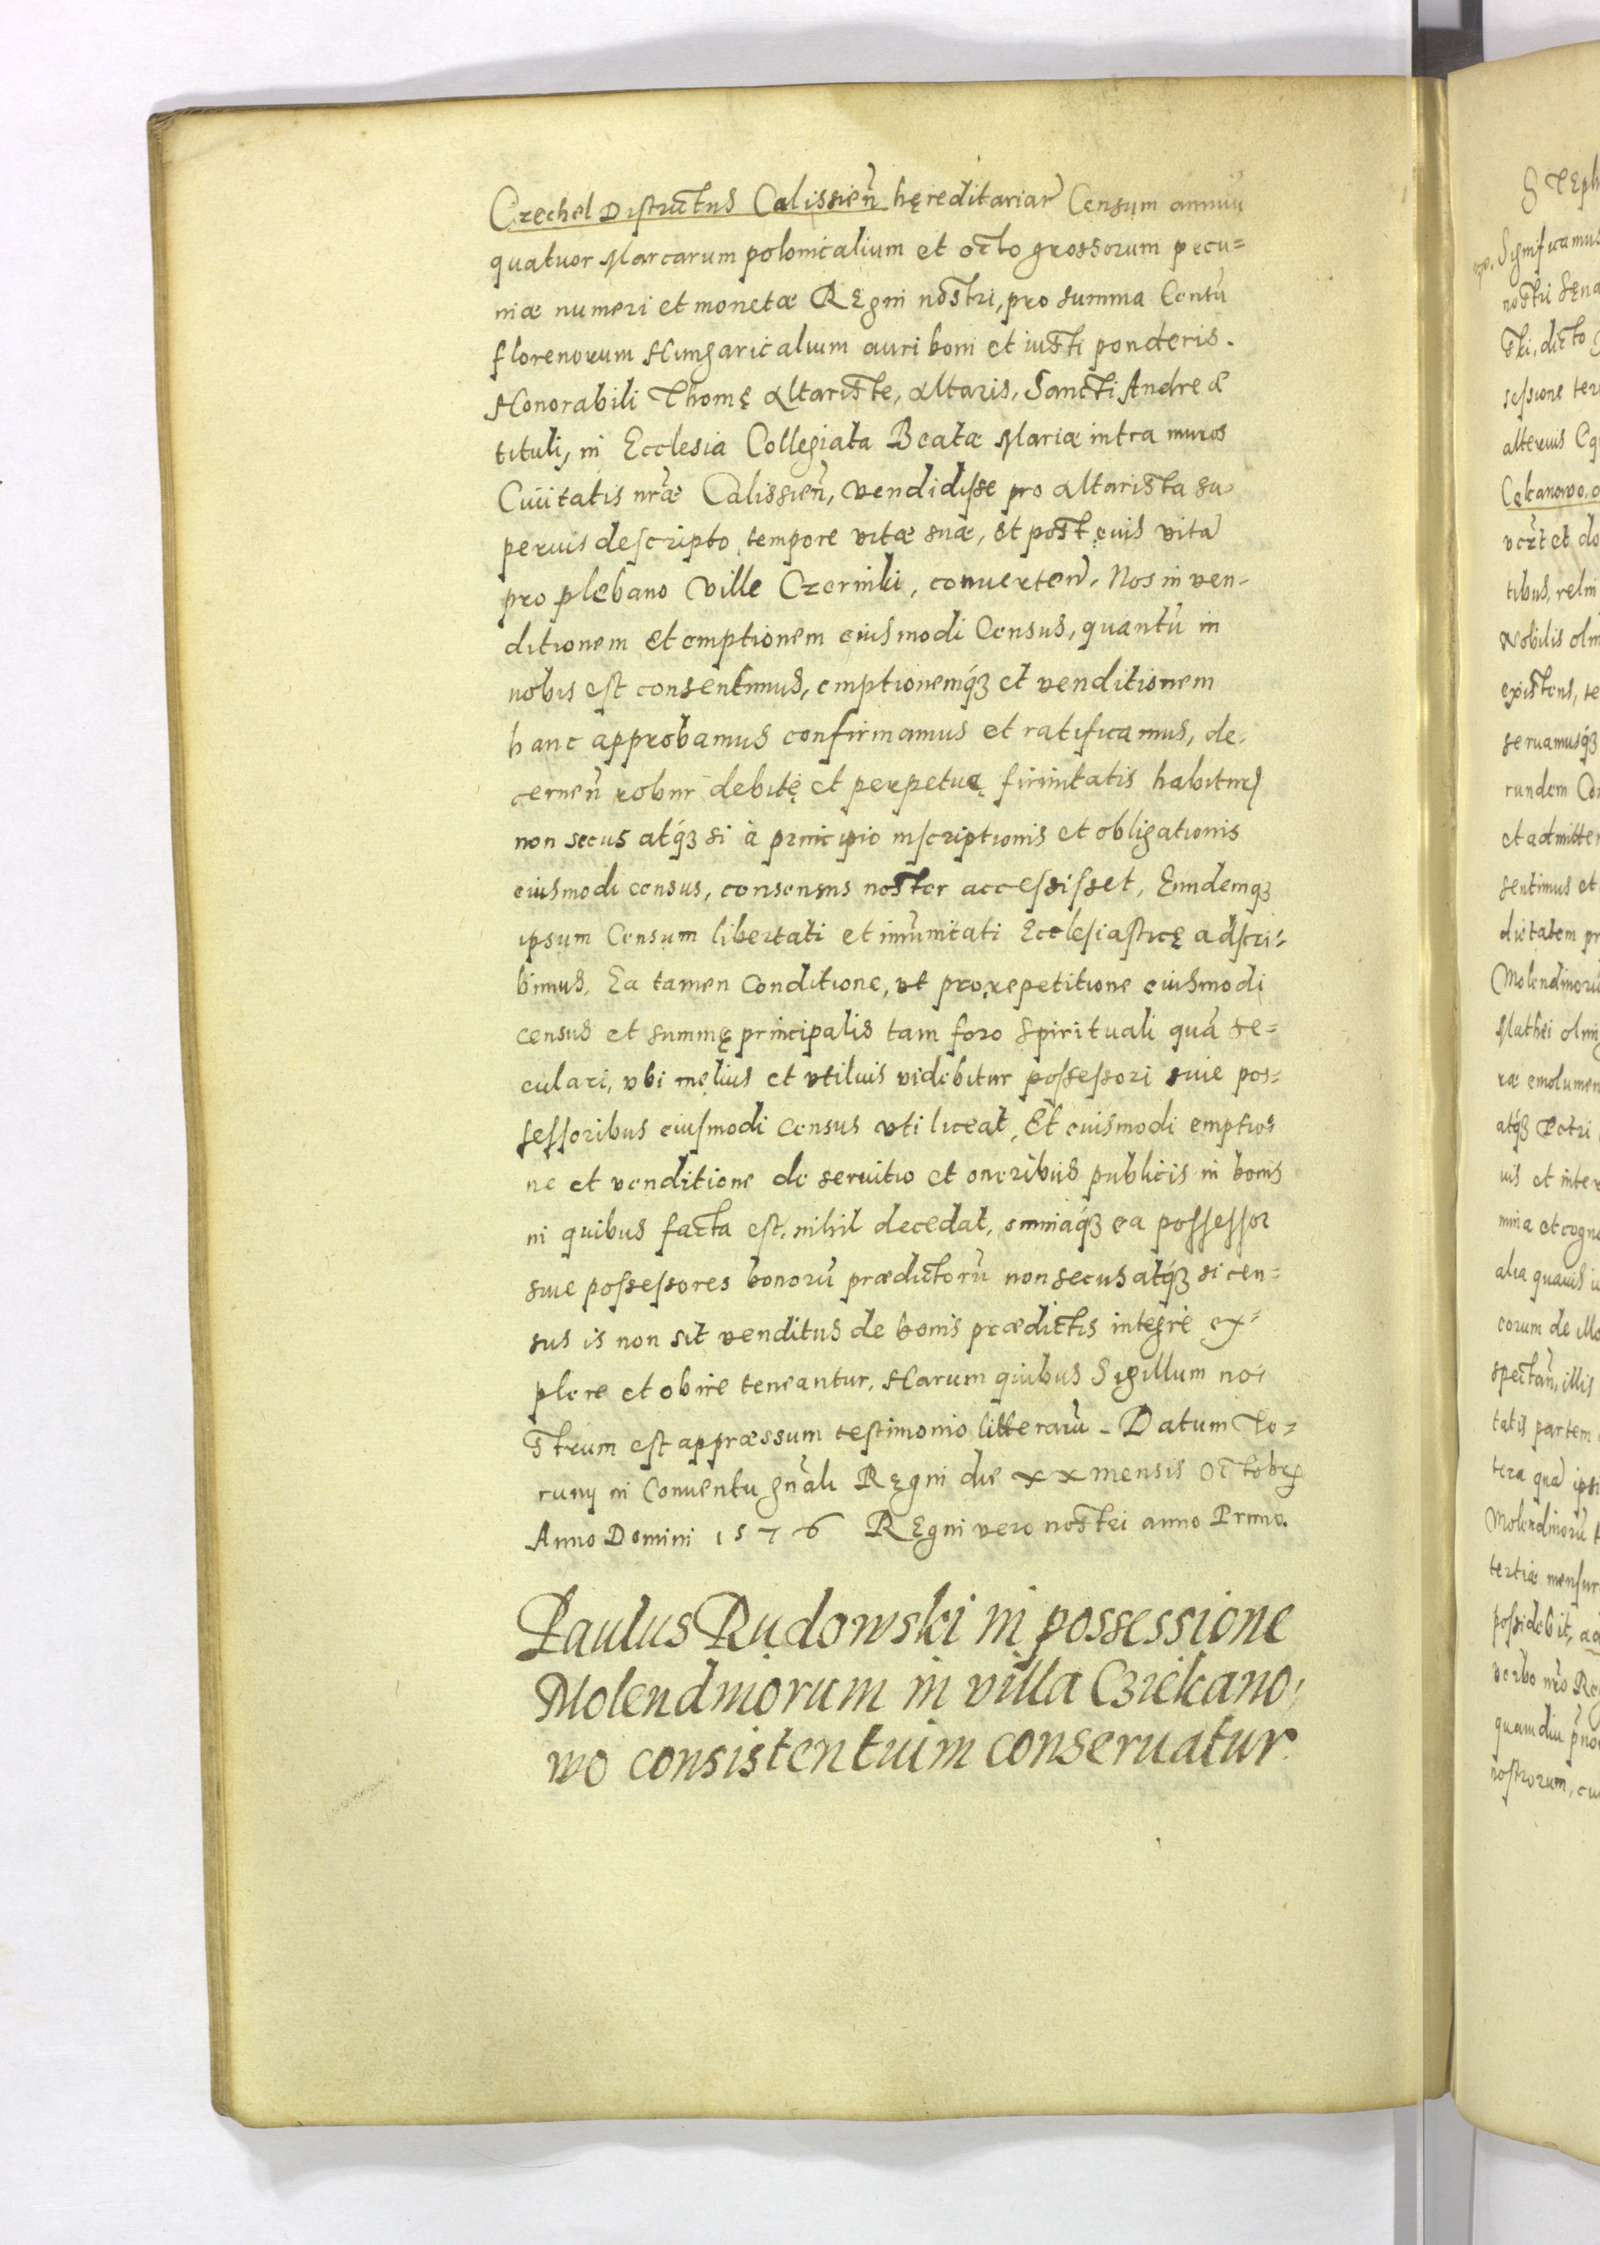 Czechel Districtus Calissień hęreditariar̃ Censum annuũ
quatuor Marcarum polonicalium et octo grossorum pecu=
niæ numeri et monetæ REgni nostri, pro summa Centũ
florenorum Hungaricalium auri boni et iusti ponderis.
Honorabili Thomę Altariste, Altaris, Sancti Andreæ
tituli, in Ecclesia Collegiata Beatæ Mariæ intra muros
Ciuitatis nr̃æ Calissień, vendidisse pro Altarista su=
perius descripto, tempore vitæ suæ, et post eius vitã
pro plebano Ville Czerniki, conuerteñ. Nos in ven=
ditionem et emptionem eiusmodi Census, quantũ in
nobis est consentimus, emptionemq́3 et venditionem
hanc approbamus confirmamus et ratificamus, de=
cerneñ robur debitę et perpetuę firmitatis habitur̃
non secus atq́3 si à principio inscriptionis et obligationis
eiusmodi census, consensus noster accessisset, Eundemq3
ipsum Censum libertati et im̃unitati Ecclesiasticę adscri=
bimus. Ea tamen Conditione, vt pro repetitione eiusmodi
census et summę principalis tam foro Spirituali quã se=
culari, vbi melius et vtilius videbitur possessori siue pos=
sessoribus eiusmodi Census vti liceat, Et eiusmodi emptio=
ne et venditione de seruitio et oneribus publicis in bonis
in quibus facta est, nihil decedat, omniaq́3 ea possessor
siue possessores bonorũ prædictorũ non secus atq́3 si cen=
sus is non sit venditus de bonis prædictis integre ex=
plere et obire teneantur. Harum quibus Sigillum no=
strum est appræssum testimonio litterarũ. Datum To=
runij in Conuentu gñali Ręgni die xx mensis Octobr̃
Anno Domini 1576 REgni vero nostri anno Primo.
Paulus Rudowski in possessione
Molendinorum in villa Cziekano=
wo consistentuim conseruatur.
STEph
Significamus
nostri Sęna
ski, dicto
sessione ter
alterius Eq
Cekanowo
vert et do
tibus, relin
Nobilis olim
existens, te
seruamusq́3
rundem Con
et admitter
sentimus et
dictatem pr
Molendinorũ
Mathei olim
ræ emolumen
atq́3 Petri
uis et inter
mina et cogno
alia quauis
eorum de illo
spectañ, illis
tatis partem
tera quã ipsi
Molendinorũ
tertiæ mensur
possidebit, ac
verbo nr̃o Reg
quamdiu
nostrorum, cu